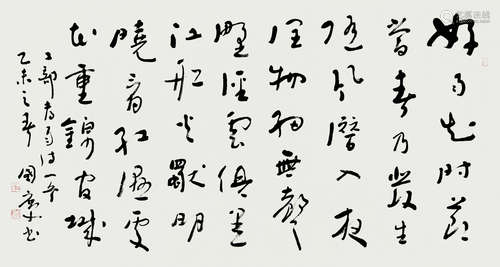 好雨知時節
當春乃發生
隨風潛入夜
潤物細無聲
野徑雲俱黑
江船火獨明
曉看紅濕處
花重錦官城
工部春雨詩一首
乙未之春 國
書